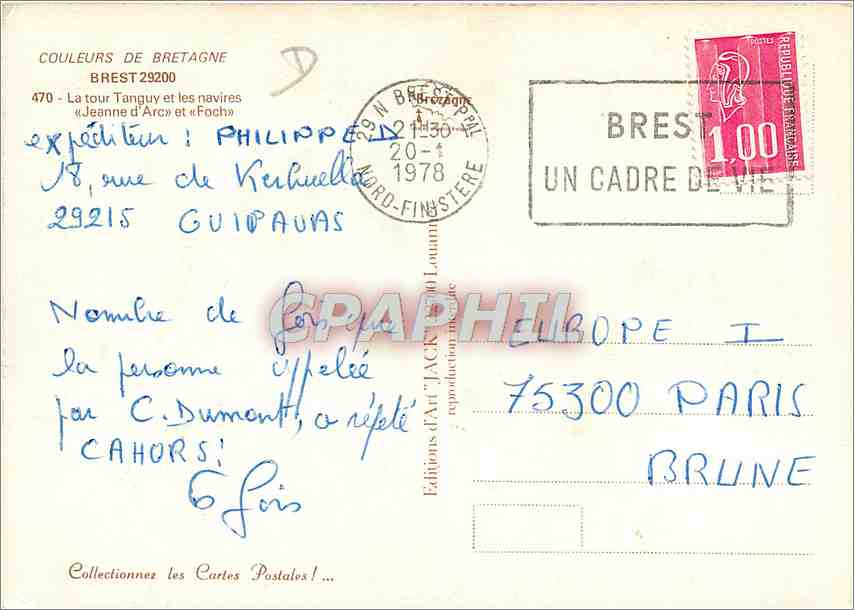 COULEURS DE BRETAGNE
BREST 29200
470 - La tour Tanguy et les navires
«Jeanne d'Arc» et «Foch»
D
expéditeur : PHILIPPE D
18, rue de Kerhuella
29215 GUIPAVAS
Nombre de fois que
la personne appelée
par C. Dumont, a répété
CAHORS!
6 fois
Collectionnez les Cartes Postales ! ...
Bretagne
29 N BREST PPAL
21H30
20-
1978
NORD-FINISTERE
BREST
UN CADRE DE VIE
POSTES
REPUBLIQUE FRANCAISE
1,00
Editions d'Art "JACK" Louann
reproduction interdite
CPAPHIL
EUROPE I
75300 PARIS
BRUNE